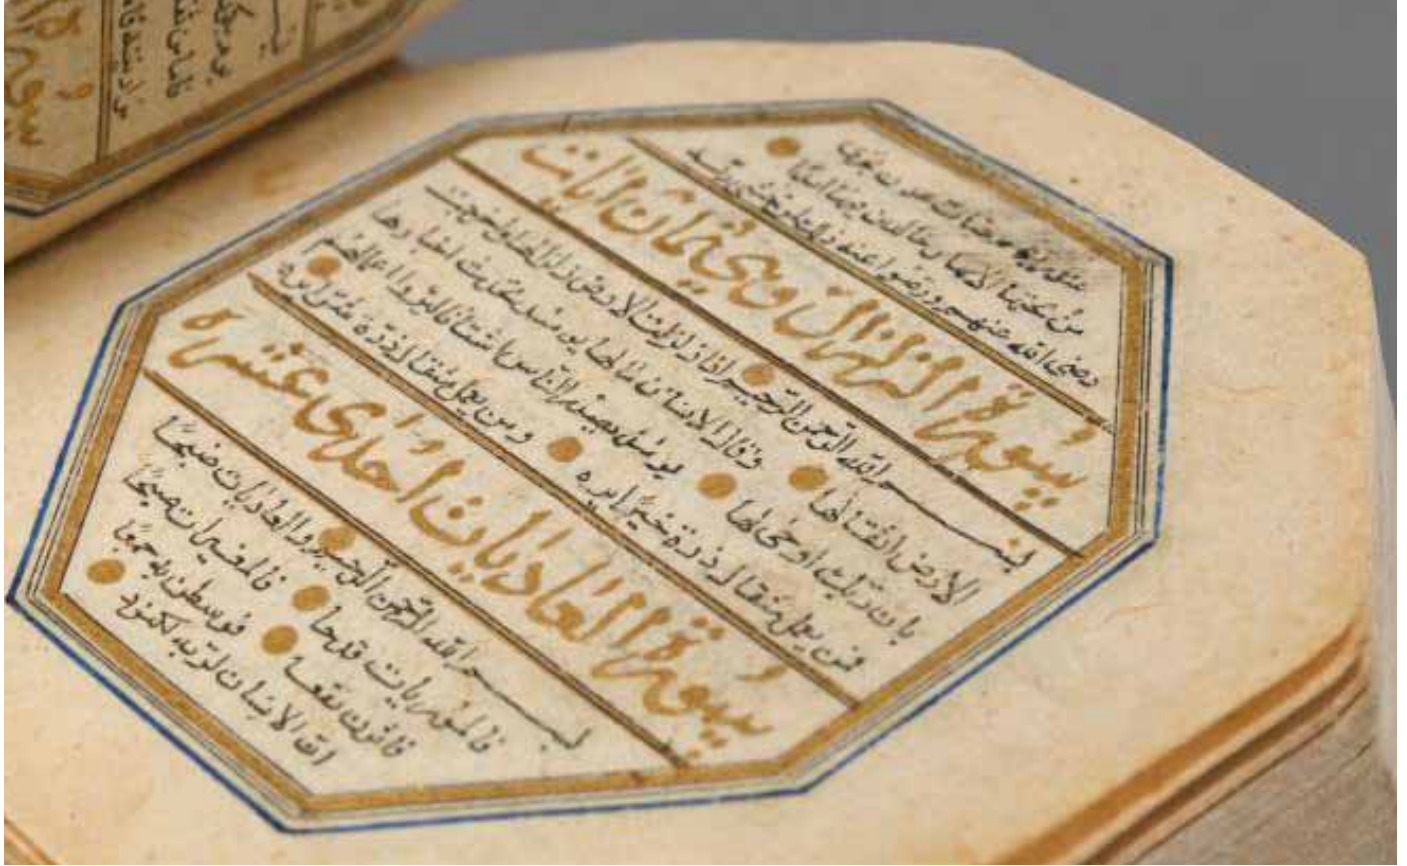 عند ربهم جنات عدن تجري
من تحتها الانهار خالدين فيها ابدا
رضي الله عنهم ورضوا عنه ذلك لمن خشي ربه
سورة الزلزال وهي ثمان ايات
بسم الله الرحمن الرحيم اذا زلزلت الارض زلزالها واخرجت
الارض اثقالها وقال الانسان مالها يومئذ تحدث اخبارها
بان ربك اوحى لها يومئذ يصدر الناس اشتاتا ليروا اعمالهم
فمن يعمل مثقال ذرة خيرا يره ومن يعمل مثقال ذرة شرا يره
سورة العاديات احدى عشر اه
بسم الله الرحمن الرحيم والعاديات ضبحا
فالموريات قدحا فالمغيرات صبحا
فاثرن نقعا فوسطن به جمعا
ان الانسان لربه لكنود